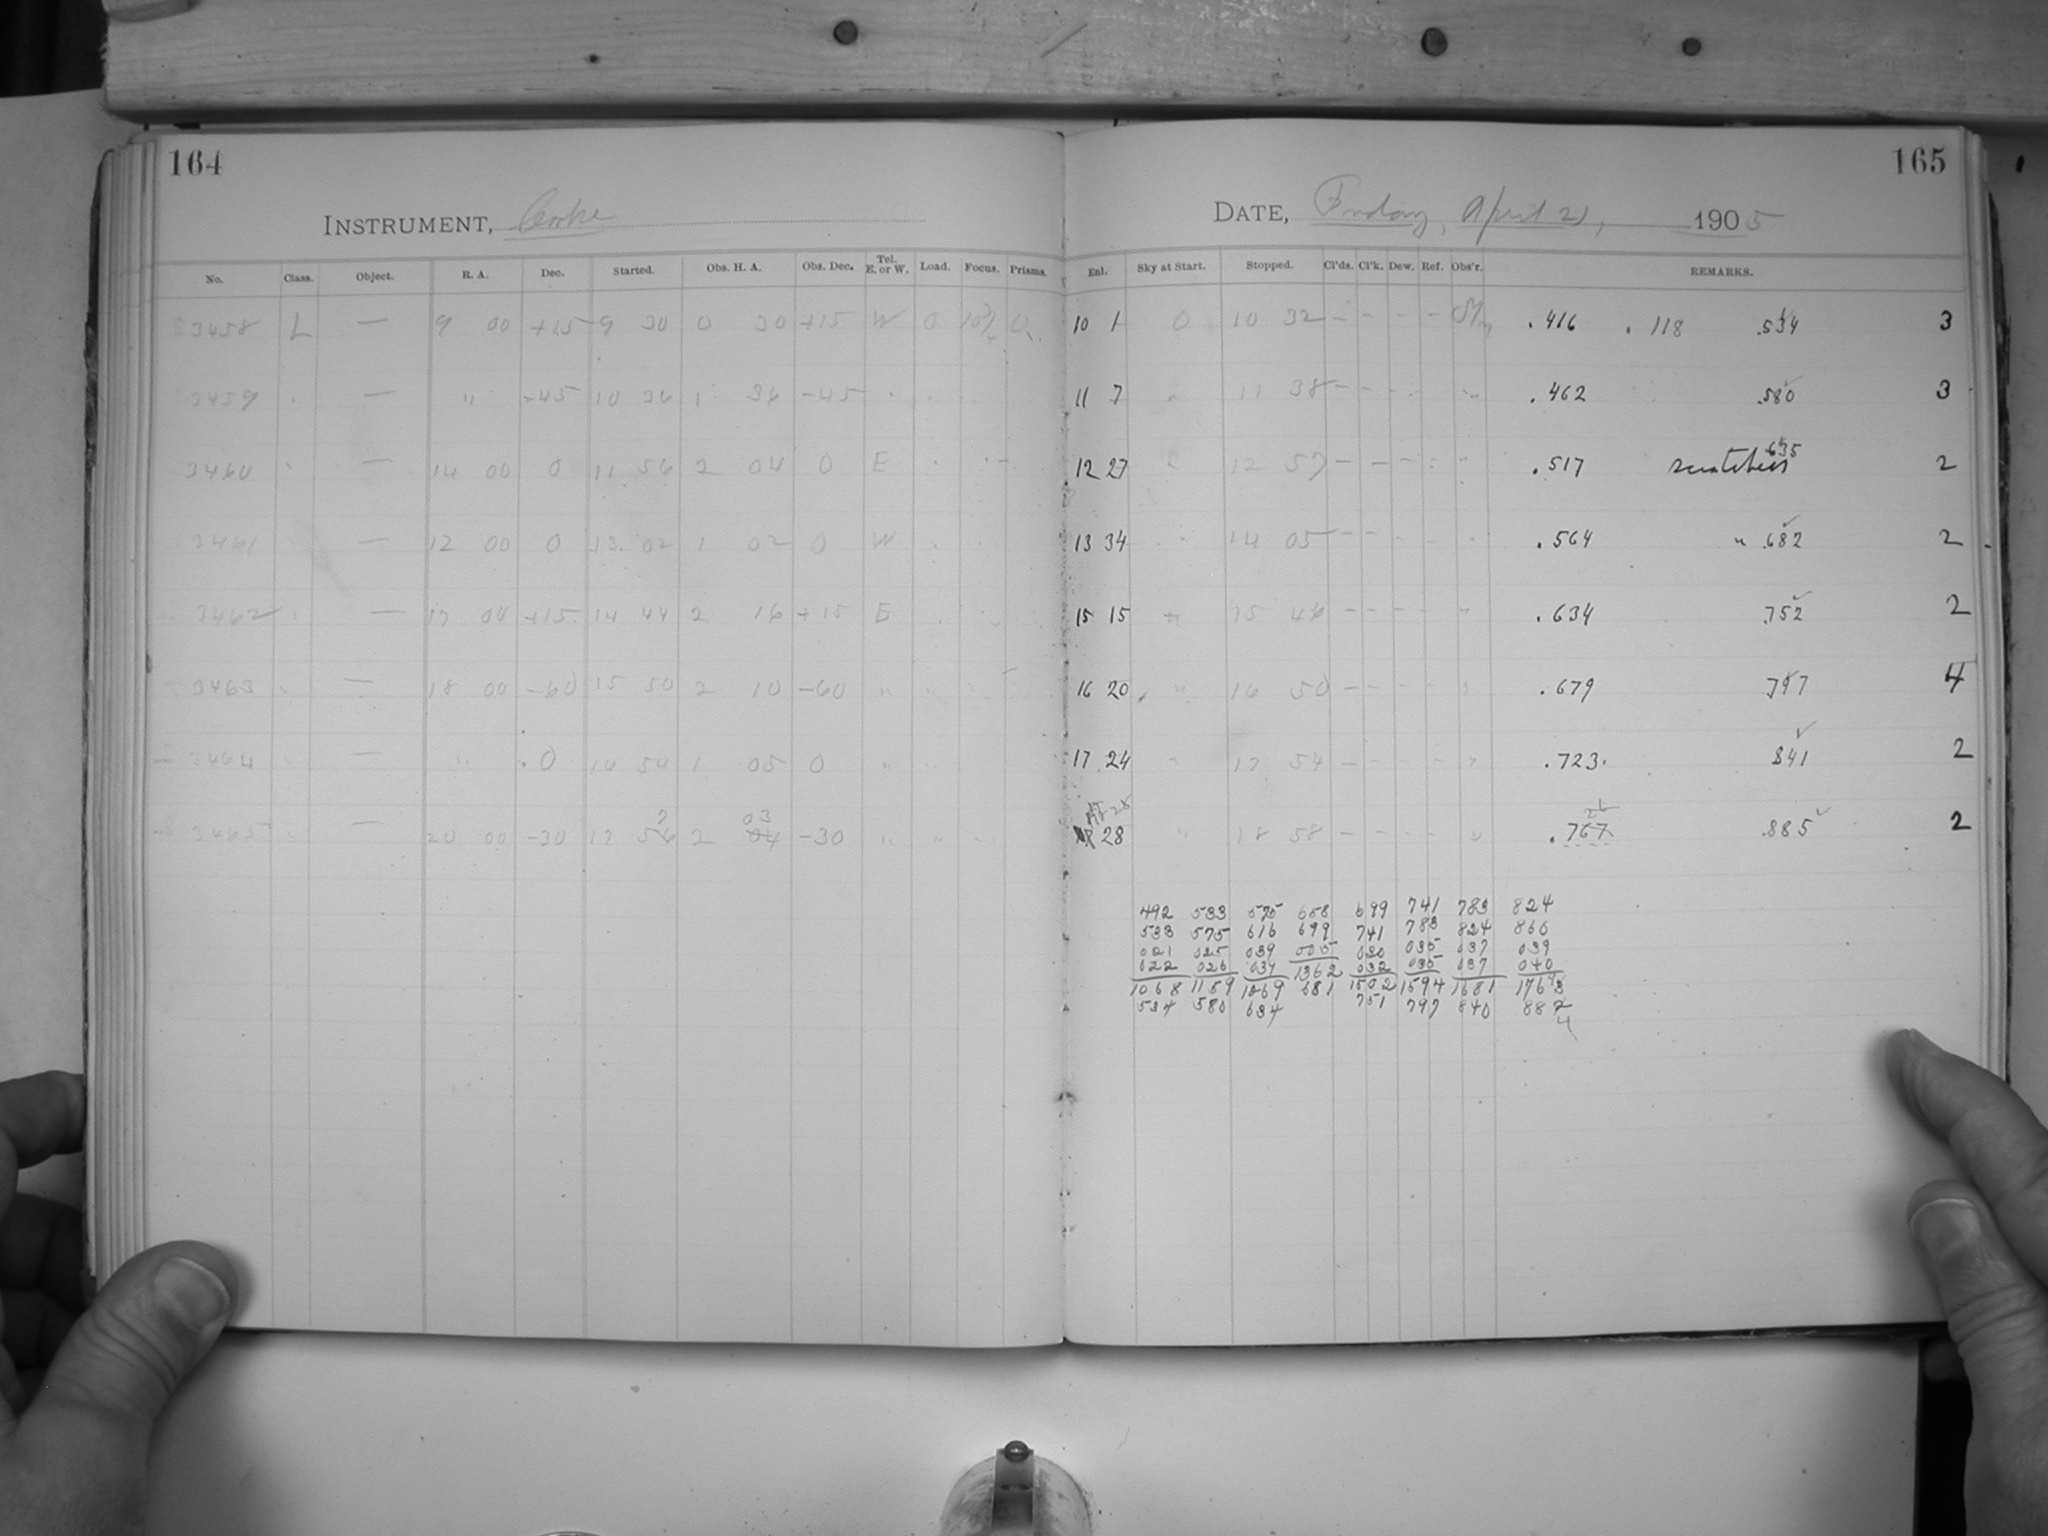 164
165
INSTRUMENT, Cooke
DATE, Friday, April 21, 1905
No. Class. Object. R. A. Dec. Started. Obs. H. A. Obs. Dec. Tel. E. or W. Load. Focus. Prisms. Enl. Sky at Start. Stopped. Cl'ds. Cl'k. Dew. Ref. Obs'r. REMARKS.
3458 L — 9 00 +15 9 30 0 30 +15 W 0 0 10 1 0 10 32 - - - - .416 .118 .534 3
3459 " — " -45 10 36 1 36 -45 " 11 7 " 11 38 - - - - " .462 .580 3
3460 " — 14 00 0 11 56 2 04 0 E 12 27 " 12 57 - - - - " .517 scratches .635 2
3461 " — 12 00 0 13 02 1 02 0 W 13 34 " 14 05 - - - - " .564 " .682 2
3462 " — 17 00 +15 14 44 2 16 +15 E 15 15 " 15 46 - - - - " .634 .752 2
3463 " — 18 00 -60 15 50 2 10 -60 " " 16 20 " 16 50 - - - - " .679 797 4
3464 " — " 0 16 54 1 05 0 " 17 24 " 17 54 - - - - " .723 841 2
3465 " — 20 00 -30 17 2 03 04 -30 " " 28 " 18 58 - - - - " .767 .885 2
492 533 575 658 699 741 783 824
533 575 616 699 741 783 824 866
021 025 039 005 030 035 037 039
022 026 039 1362 032 035 037 040
1068 1159 1269 681 1502 1594 1681
534 580 634 751 797 840 882
4